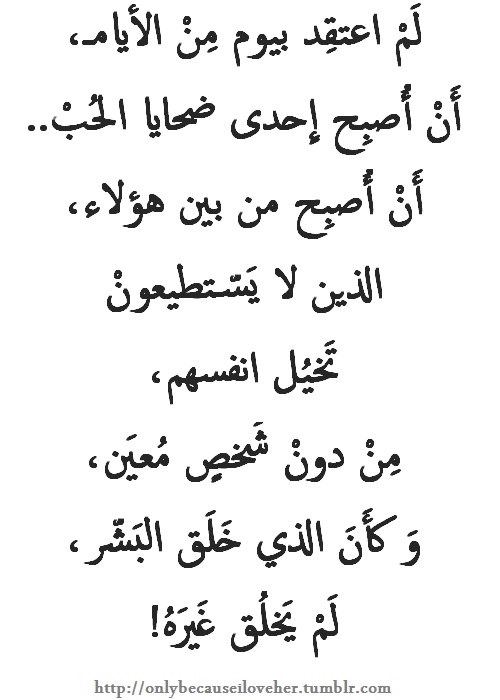 لَمْ اعتقِد بيوم مِنْ الأيامـ،
أَنْ أُصبِح إِحدى ضحايا الحُبْ..
أَنْ أُصبِح من بين هؤلاء،
الذين لا يَسّـتطيعونْ
تَخيُل انفسهم،
مِنْ دونْ شَخصٍ مُعيَن،
وَ كأَنَ الذي خَلَق البَشّر،
لَمْ يَخلُق غَيرَهُ!
http://onlybecauseiloveher.tumblr.com